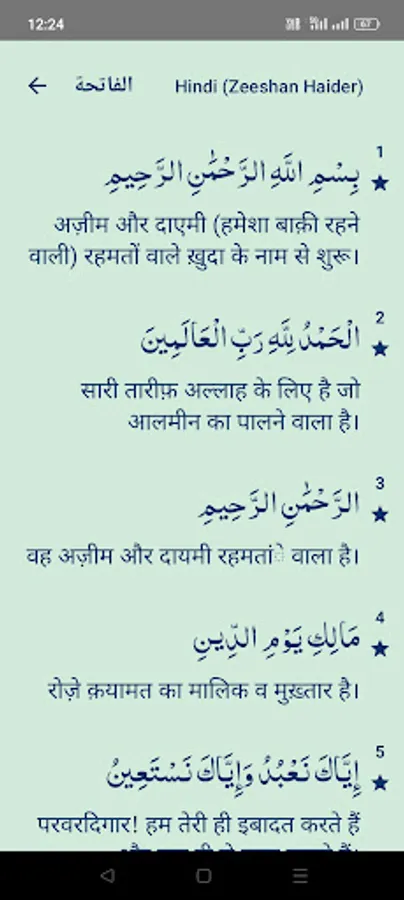 12:24
67
← الفاتحة Hindi (Zeeshan Haider)
1
بِسْمِ اللَّهِ الرَّحْمَٰنِ الرَّحِيمِ
अज़ीम और दाएमी (हमेशा बाक़ी रहने
वाली) रहमतों वाले ख़ुदा के नाम से शुरू।
2
الْحَمْدُ لِلَّهِ رَبِّ الْعَالَمِينَ
सारी तारीफ़ अल्लाह के लिए है जो
आलमीन का पालने वाला है।
3
الرَّحْمَٰنِ الرَّحِيمِ
वह अज़ीम और दायमी रहमतांे वाला है।
4
مَالِكِ يَوْمِ الدِّينِ
रोज़े क़यामत का मालिक व मुख़्तार है।
5
إِيَّاكَ نَعْبُدُ وَإِيَّاكَ نَسْتَعِينُ
परवरदिगार! हम तेरी ही इबादत करते हैं